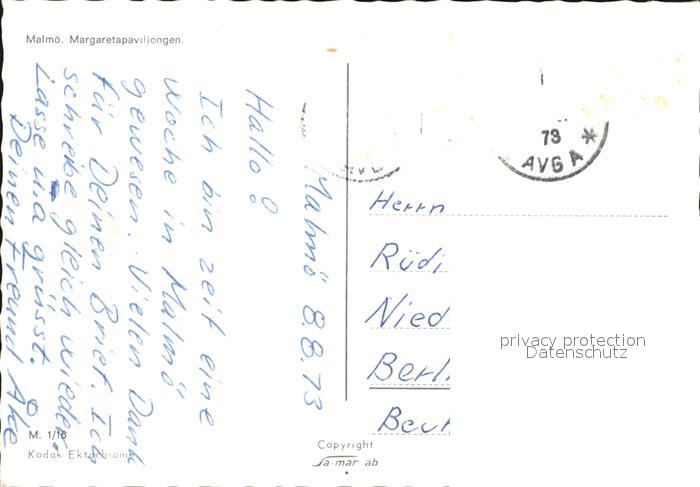 Malmö. Margaretapaviljongen.
Malmö 8.8.73
Hallo!
Ich bin zeit eine
Woche in Malmö
gewesen. Vielen Dank
für Deinen Brief. Ich
schreibe gleich wieder.
Lasse u.a grüsst.
Deinen Freund Åke
M. 1/16
Kodak Ektachrome
Copyright
Sa-mar ab
73
AVG A *
Herrn
Rüdi
Nied
Berli
privacy protection
Datenschutz